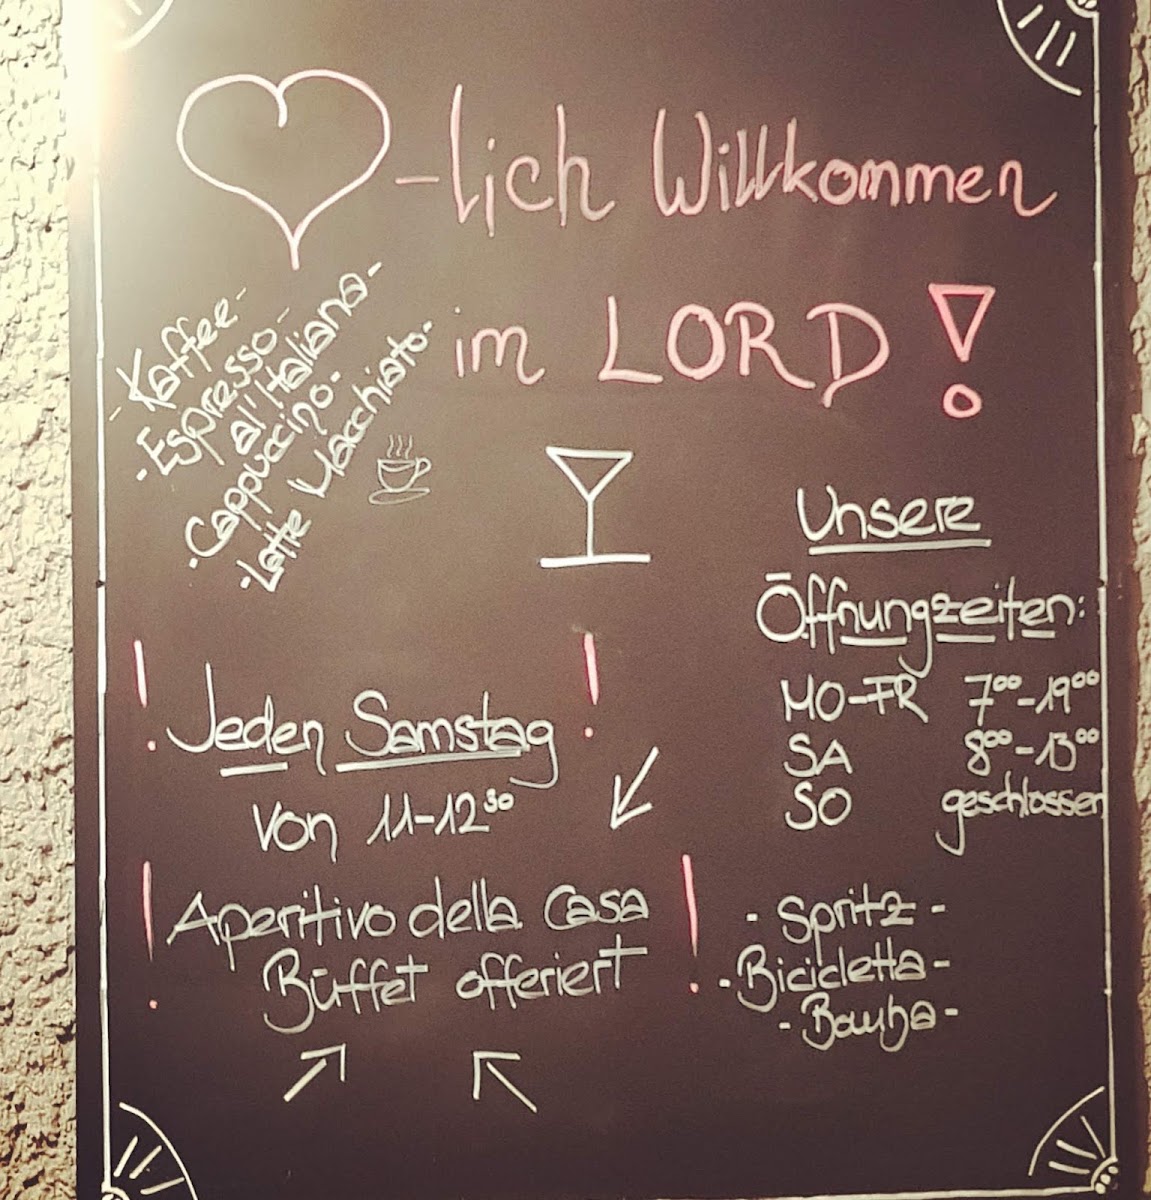 -lich Willkommen
im LORD!
- Kaffee -
- Espresso -
al' Italiana -
- Cappuccino -
- Latte Macchiato -
Unsere
Öffnungzeiten:
MO-FR 7⁰⁰-19⁰⁰
SA 8⁰⁰-13⁰⁰
SO geschlossen
! Jeden Samstag !
von 11-12³⁰
! Aperitivo della Casa !
Büffet offeriert
- Spritz -
- Bicicletta -
- Bomba -